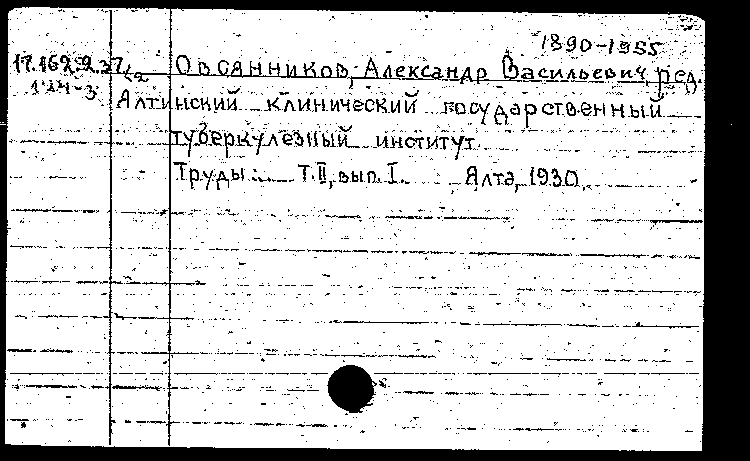 1890-1955
17.162.2.37
Овсянников, Александр Васильевич, ред.
Алтинский клинический государственный
туберкулезный институт.
Труды... Т.II, вып. I. Ялта, 1930.